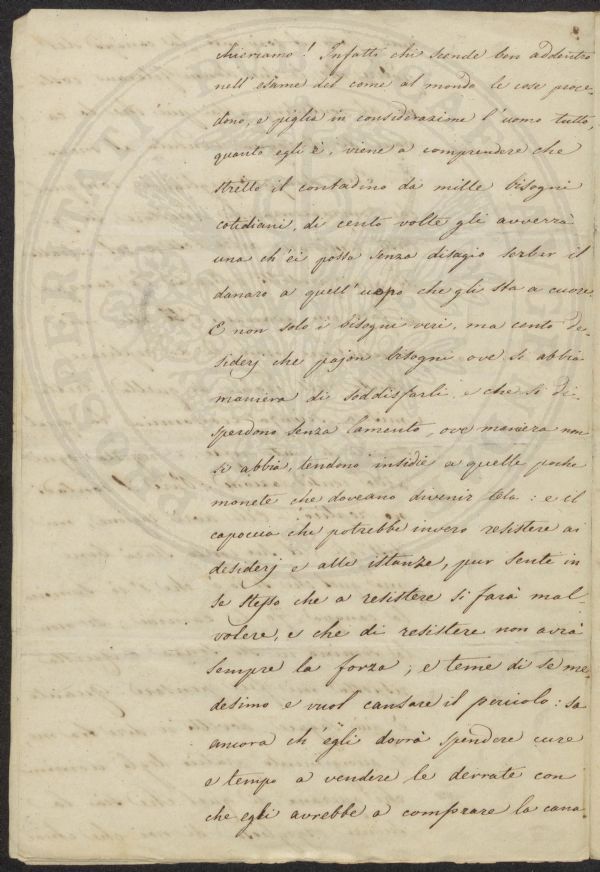 chieriamo! Infatti chi scende ben addentro
nell'esame del come al mondo le cose proce-
dono, e piglia in considerazione l'uomo tutto,
quanto egli è, viene a comprendere che
stretto il contadino da mille bisogni
cotidiani, di cento volte gli avverrà
una ch'ei possa senza disagio serbar il
danaro a quell'uopo che gli sta a cuore.
E non solo i bisogni veri, ma cento de-
siderj che pajon bisogni ove si abbia
maniera di soddisfarli, e che si di-
sperdono senza lamento, ove maniera non
si abbia, tendono insidie a quelle poche
monete che doveano divenir tela: e il
capoccia che potrebbe invero resistere ai
desiderj e alle istanze, pur sente in
se stesso che a resistere si farà mal-
volere, e che di resistere non avrà
sempre la forza; e teme di se me-
desimo e vuol cansare il pericolo: sa
ancora ch'egli dovrà spendere cure
e tempo a vendere le derrate con
che egli avrebbe a comprare la cana